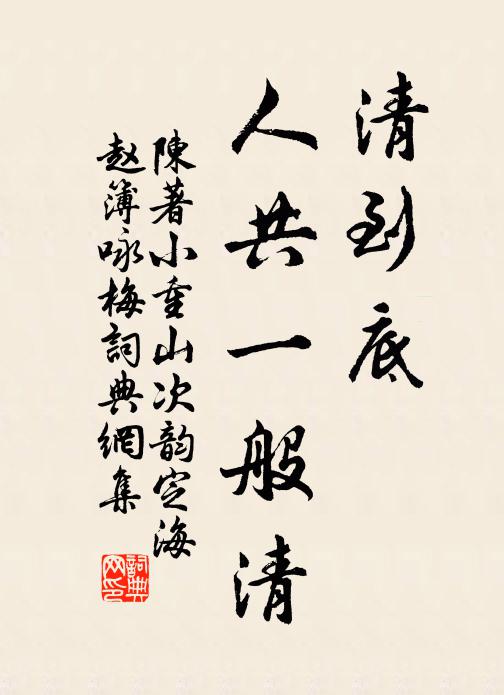 清到底
人共一般清
陳著小重山次韵定海
赵簿咏梅詞典網集
詞典
网印